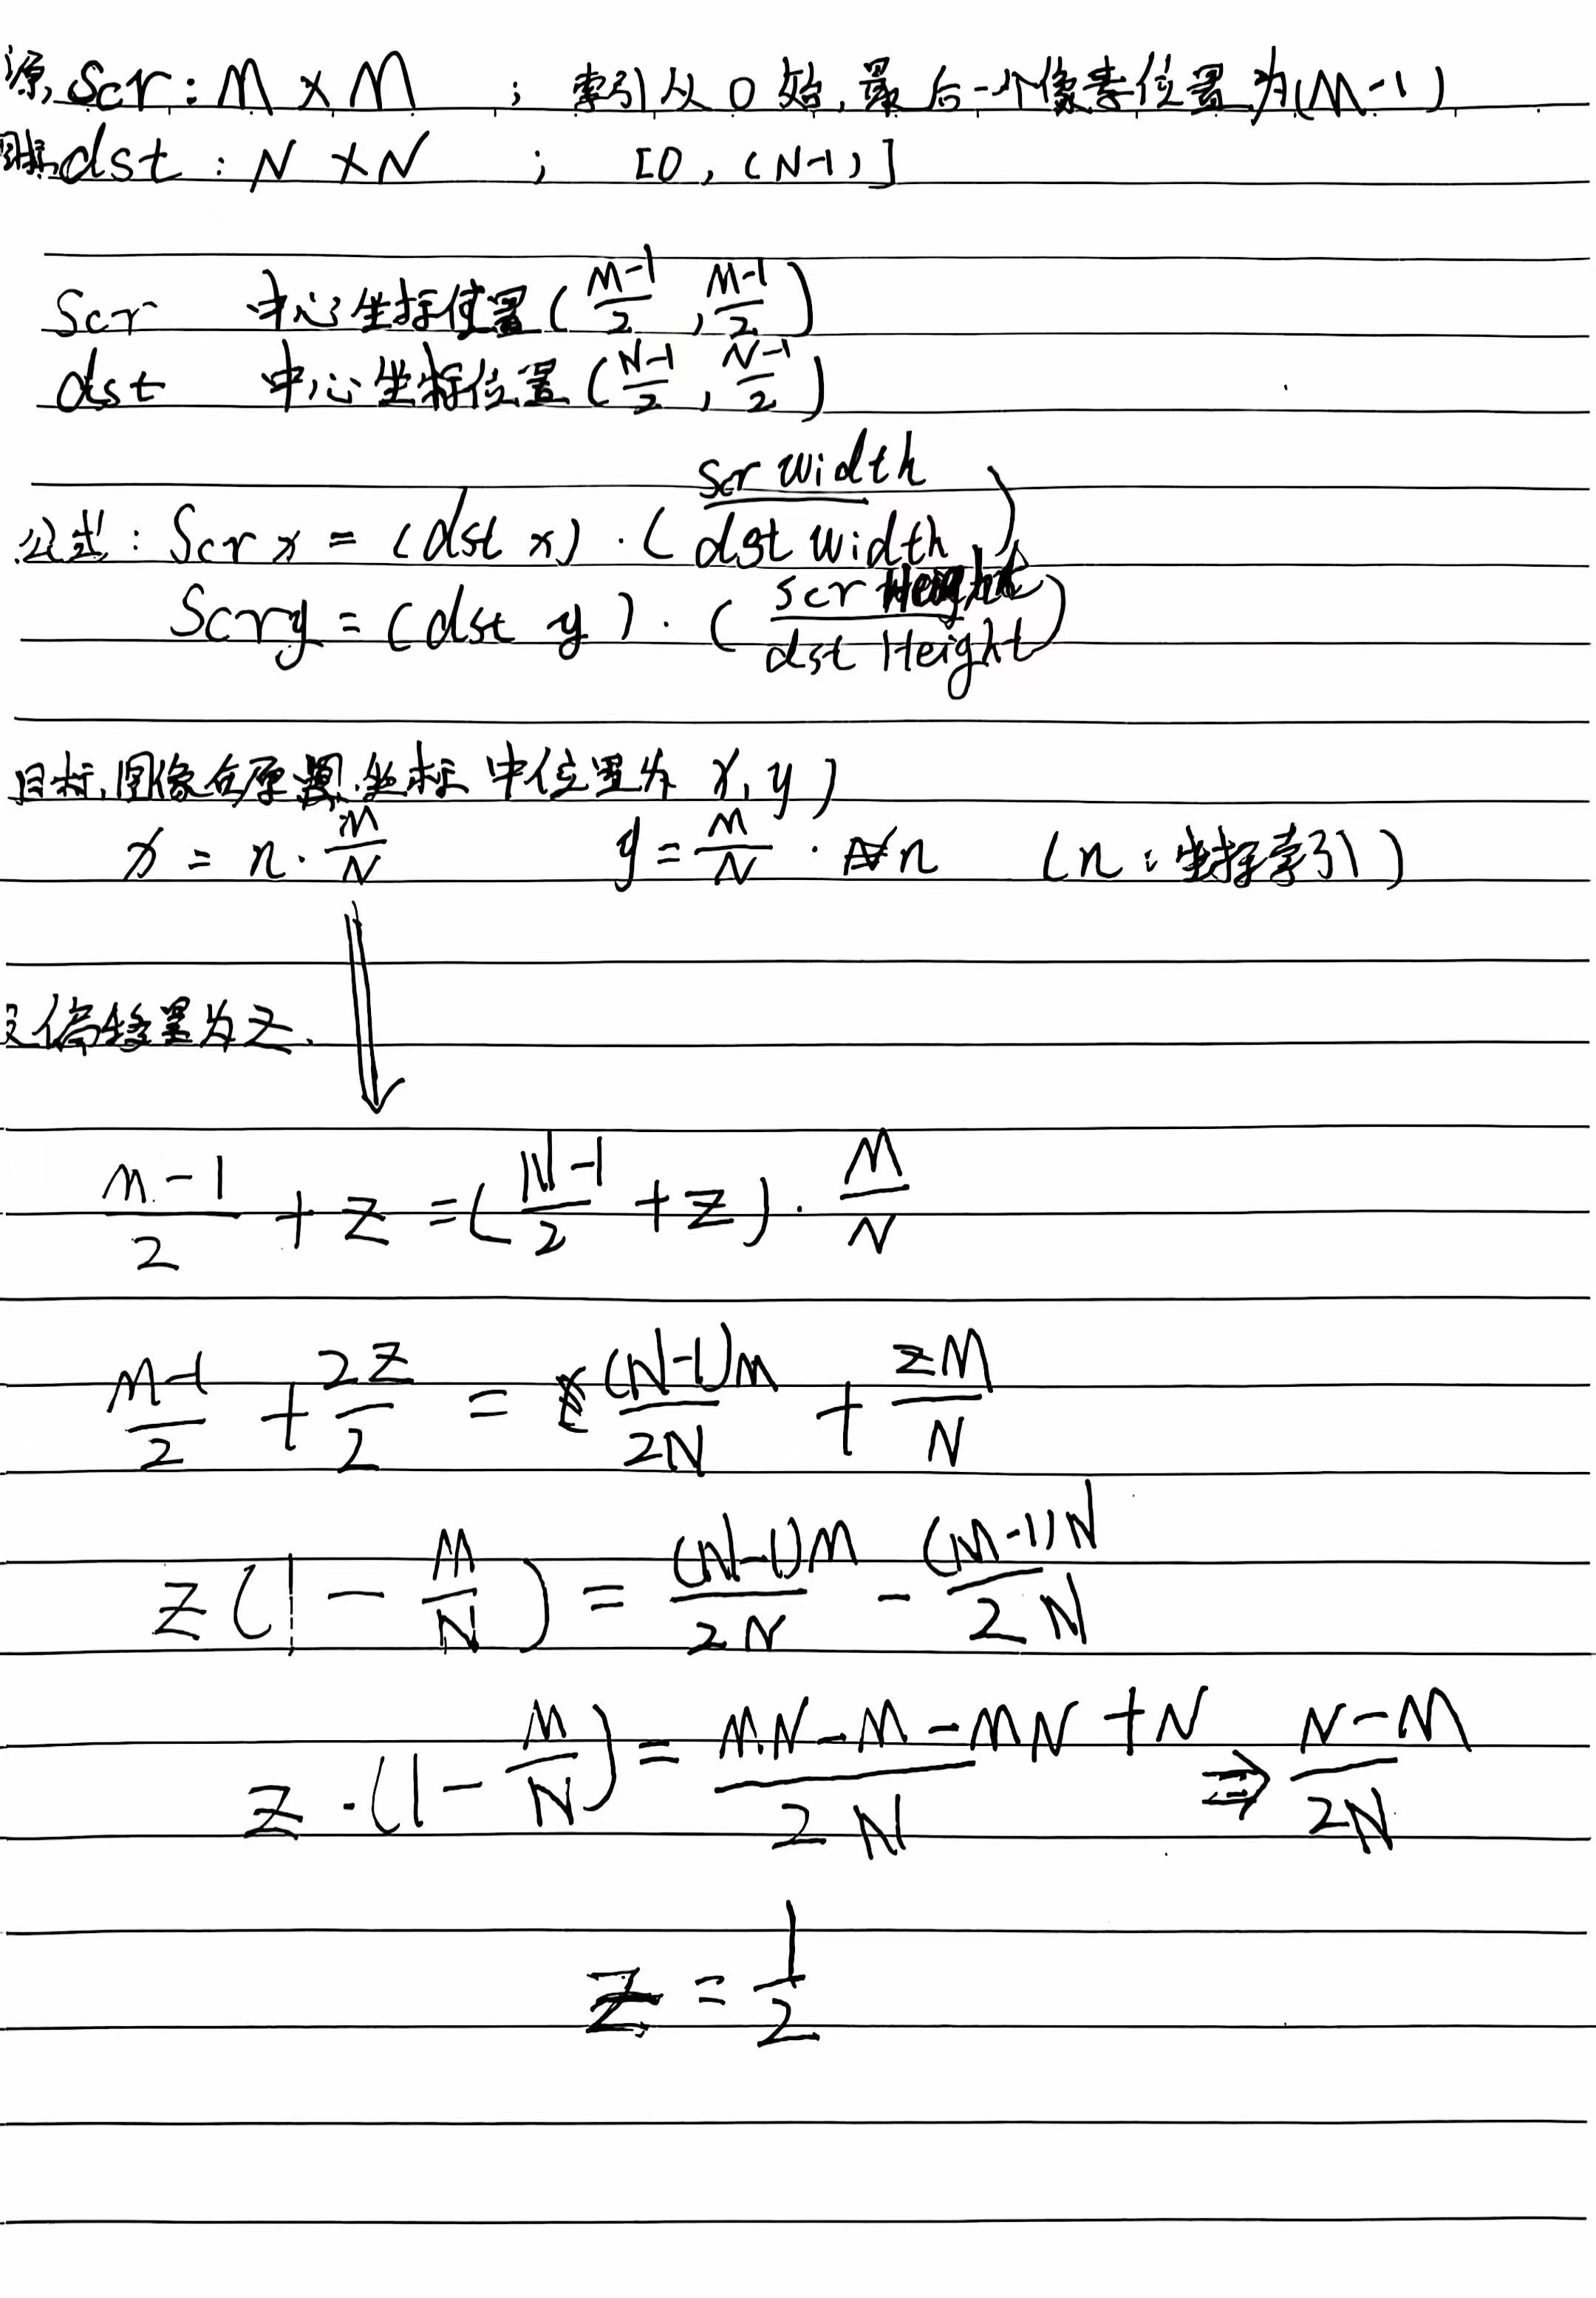 源 Scr : M × M ; 索引从 0 始, 最后一个像素位置为(M-1)
目标 dst : N × N ; [0, (N-1)]
Scr 中心坐标位置 ( \frac{M-1}{2} , \frac{M-1}{2} )
dst 中心坐标位置 ( \frac{N-1}{2} , \frac{N-1}{2} )
公式 : Scr x = (dst x) · ( \frac{Scr width}{dst width} )
Scr y = (dst y) · ( \frac{scr Height}{dst Height} )
目标图像在原图坐标中位置为 x, y)
x = n · \frac{M}{N} y = \frac{M}{N} · n (n : 坐标索引)
设偏移量为 z.
\frac{M-1}{2} + z = ( \frac{N-1}{2} + z ) · \frac{M}{N}
\frac{M-1}{2} + \frac{2z}{2} = \frac{(N-1)M}{2N} + \frac{zM}{N}
z ( 1 - \frac{M}{N} ) = \frac{(N-1)M}{2N} - \frac{(M-1)N}{2N}
z · ( 1 - \frac{M}{N} ) = \frac{M·N - M - MN + N}{2N} ⇒ \frac{N-M}{2N}
z = \frac{1}{2}